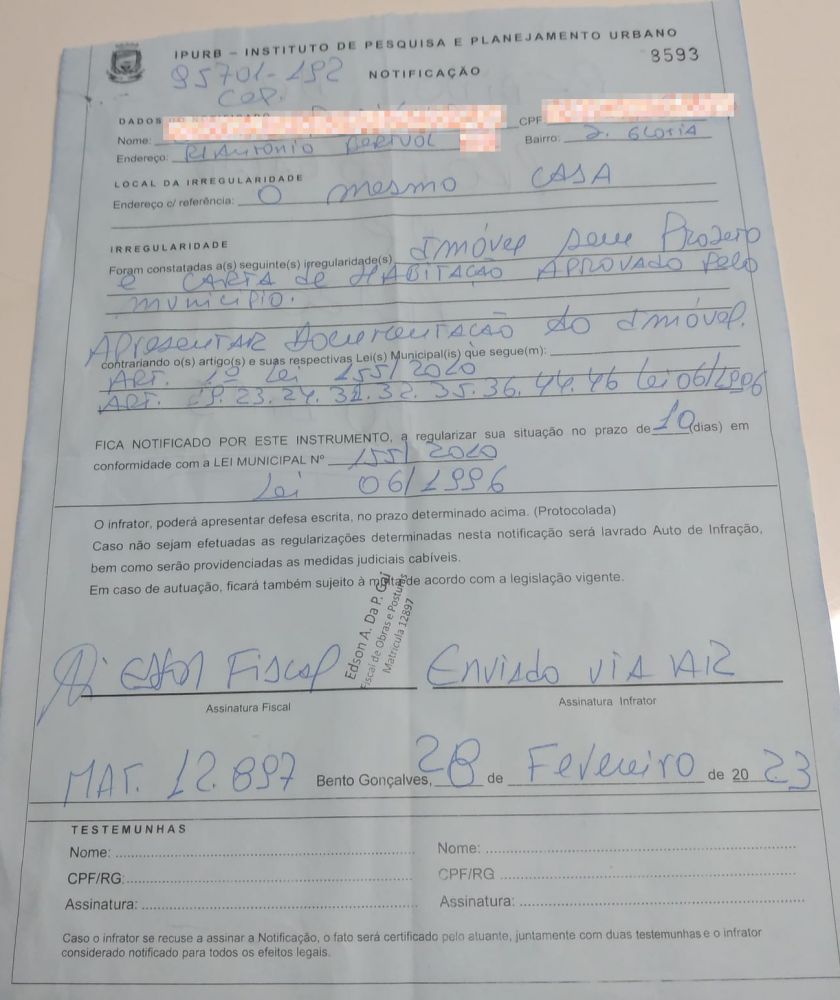 IPURB – INSTITUTO DE PESQUISA E PLANEJAMENTO URBANO
8593
95701-192
NOTIFICAÇÃO
CEP.
DADOS DO NOTIFICADO
Nome: CPF
Endereço: R. Antonio Bairro: J. Gloria
LOCAL DA IRREGULARIDADE
Endereço c/ referência: O mesmo CASA
IRREGULARIDADE
Foram constatadas a(s) seguinte(s) irregularidade(s) Imóvel sem Projeto
e CARTA de HABITAÇÃO APROVADO Pelo
município.
Apresentar Documentação do Imóvel.
contrariando o(s) artigo(s) e suas respectivas Lei(s) Municipal(is) que segue(m):
ART. 1º Lei 155/2020
ART. 19. 23. 24. 31. 32. 35. 36. 44. 46 Lei 06/1996
FICA NOTIFICADO POR ESTE INSTRUMENTO, a regularizar sua situação no prazo de 10 (dias) em
conformidade com a LEI MUNICIPAL Nº 155/2020
Lei 06/1996
O infrator, poderá apresentar defesa escrita, no prazo determinado acima. (Protocolada)
Caso não sejam efetuadas as regularizações determinadas nesta notificação será lavrado Auto de Infração,
bem como serão providenciadas as medidas judiciais cabíveis.
Em caso de autuação, ficará também sujeito à multa de acordo com a legislação vigente.
Edson A. Da P. Gai
Fiscal de Obras e Posturas
Matricula 12897
Fiscal Enviado via AR
Assinatura Fiscal Assinatura Infrator
MAT. 12.897 Bento Gonçalves, 28 de Fevereiro de 20 23
TESTEMUNHAS
Nome: Nome:
CPF/RG: CPF/RG
Assinatura: Assinatura:
Caso o infrator se recuse a assinar a Notificação, o fato será certificado pelo atuante, juntamente com duas testemunhas e o infrator
considerado notificado para todos os efeitos legais.